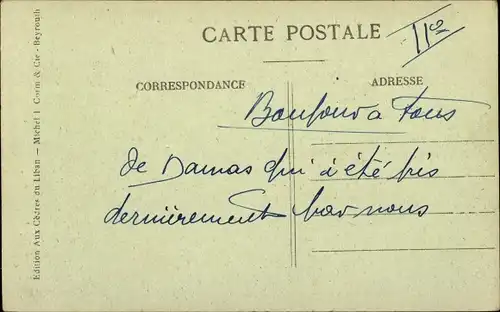 CARTE POSTALE
11e
CORRESPONDANCE
ADRESSE
Bonjour a Tous
de Damas qui a été pris
dernièrement par nous
Edition Aux Cèdres du Liban — Michel I. Corm & Cie - Beyrouth